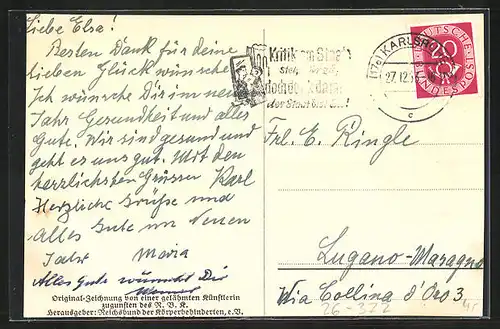 Liebe Elsa!
Besten Dank für deine
lieben Glückwünsche
Ich wünsche Dir im neuen
Jahr Gesundheit und alles
Gute. Wir sind gesund und
geht es uns gut. Mit den
herzlichsten Grüssen Karl
Herzliche Grüße und
Alles Gute im Neuen
Jahr Maria
Alles Gute wünscht Dir
Original-Zeichnung von einer gelähmten Künstlerin
zugunsten des R. B. K.
Herausgeber: Reichsbund der Körperbehinderten, e.V.
Kritik am Staat
doch denk daran
der Staat bist Du!
(17a) KARLSRUHE
27.12.
c
DEUTSCHE
BUNDESPOST
20
Frl. E. Ringle
Lugano-Massagno
Via Collina d'Oro 3
26-322